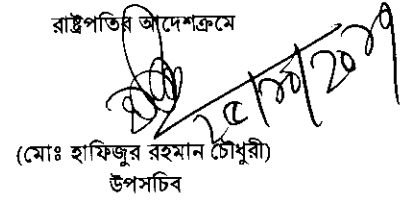 রাষ্ট্রপতির আদেশক্রমে
(মোঃ হাফিজুর রহমান চৌধুরী)
উপসচিব